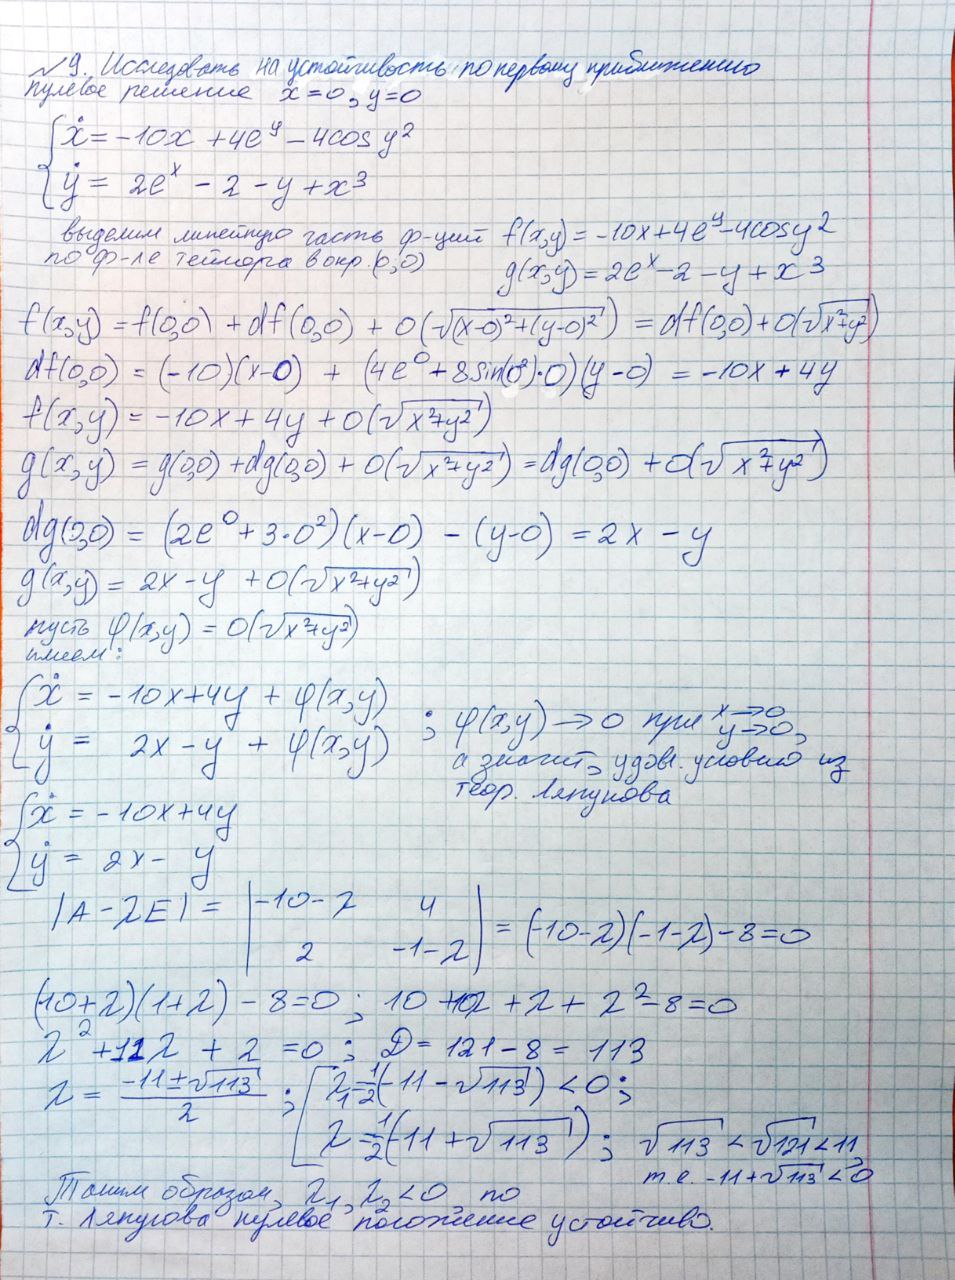 №9. Исследовать на устойчивость по первому приближению
нулевое решение x=0, y=0
ẋ = -10x + 4e^y - 4cos y^2
ẏ = 2e^x - 2 - y + x^3
выделим линейную часть ф-ций f(x,y) = -10x+4e^y-4cosy^2
по ф-ле Тейлора в окр. (0,0) g(x,y) = 2e^x-2-y+x^3
f(x,y) = f(0,0) + df(0,0) + o(√((x-0)^2+(y-0)^2)) = df(0,0)+o(√(x^2+y^2))
df(0,0) = (-10)(x-0) + (4e^0+8sin(0^2)·0)(y-0) = -10x+4y
f(x,y) = -10x+4y+o(√(x^2+y^2))
g(x,y) = g(0,0)+dg(0,0)+o(√(x^2+y^2)) = dg(0,0)+o(√(x^2+y^2))
dg(0,0) = (2e^0+3·0^2)(x-0) - (y-0) = 2x-y
g(x,y) = 2x-y+o(√(x^2+y^2))
пусть φ(x,y) = o(√(x^2+y^2))
имеем:
ẋ = -10x+4y + φ(x,y)
ẏ = 2x-y + φ(x,y) ; φ(x,y)→0 при x→0 y→0,
а значит, удовл. условию из
теор. Ляпунова
ẋ = -10x+4y
ẏ = 2x - y
|A-λE| = |-10-λ 4
2 -1-λ| = (-10-λ)(-1-λ)-8=0
(10+λ)(1+λ) - 8=0 ; 10+10λ+λ+λ^2-8=0
λ^2+11λ+2=0 ; D=121-8=113
λ = (-11±√113)/2 ; [ λ1=1/2(-11-√113) <0;
λ=1/2(-11+√113) ; √113 < √121 < 11,
т.е. -11+√113<0
Таким образом, λ1, λ2 <0, по
т. Ляпунова нулевое положение устойчиво.